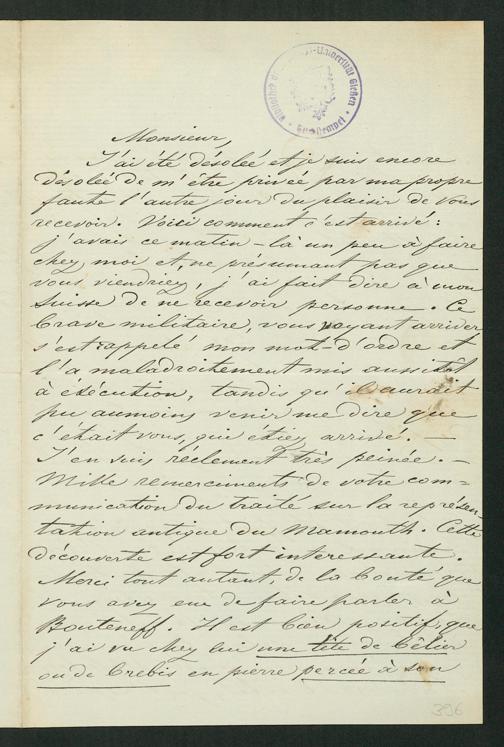 Universität Gießen
Monsieur,
J'ai été désolée et je suis encore
désolée de m'être privée par ma propre
faute l'autre jour du plaisir de vous
recevoir. Voici comment c'est arrivé:
j'avais ce matin-là un peu à faire
chez moi et, ne présumant pas que
vous viendriez, j'ai fait dire à mon
Suisse de ne recevoir personne. Ce
brave militaire, vous voyant arriver
s'est rappelé mon mot-d'ordre et
l'a maladroitement mis aussitôt
à éxécution, tandis qu'il aurait
pu aumoins venir me dire que
c'était vous, qui étiez arrivé. —
J'en suis réelement très peinée. —
Mille remerciments de votre com-
munication du traité sur la représen-
tation antique du Mamouth. Cette
découverte est fort interessante.
Merci tout autant, de la bonté que
vous avez eue de faire parler à
Bouteneff. Il est bien positif, que
j'ai vu chez lui une tête de bêlier
ou de brebis en pierre percée à son
396